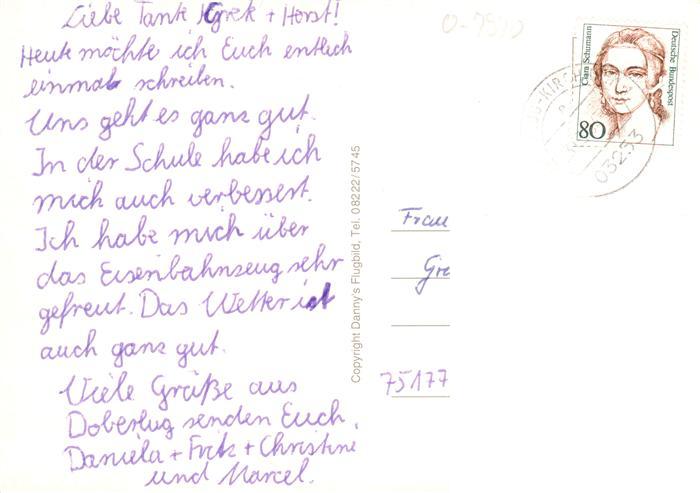 Liebe Tante Gret + Horst!
Heute möchte ich Euch entlich
einmal schreiben.
Uns geht es ganz gut.
In der Schule habe ich
mich auch verbessert.
Ich habe mich über
das Eisenbahnzeug sehr
gefreut. Das Wetter ist
auch ganz gut.
Viele Grüße aus
Doberlug senden Euch,
Daniela + Fritz + Christine
und Marcel.
Copyright Danny's Flugbild, Tel. 08222/5745
Clara Schumann
Deutsche Bundespost
80
03253
Frau
Gre
75177